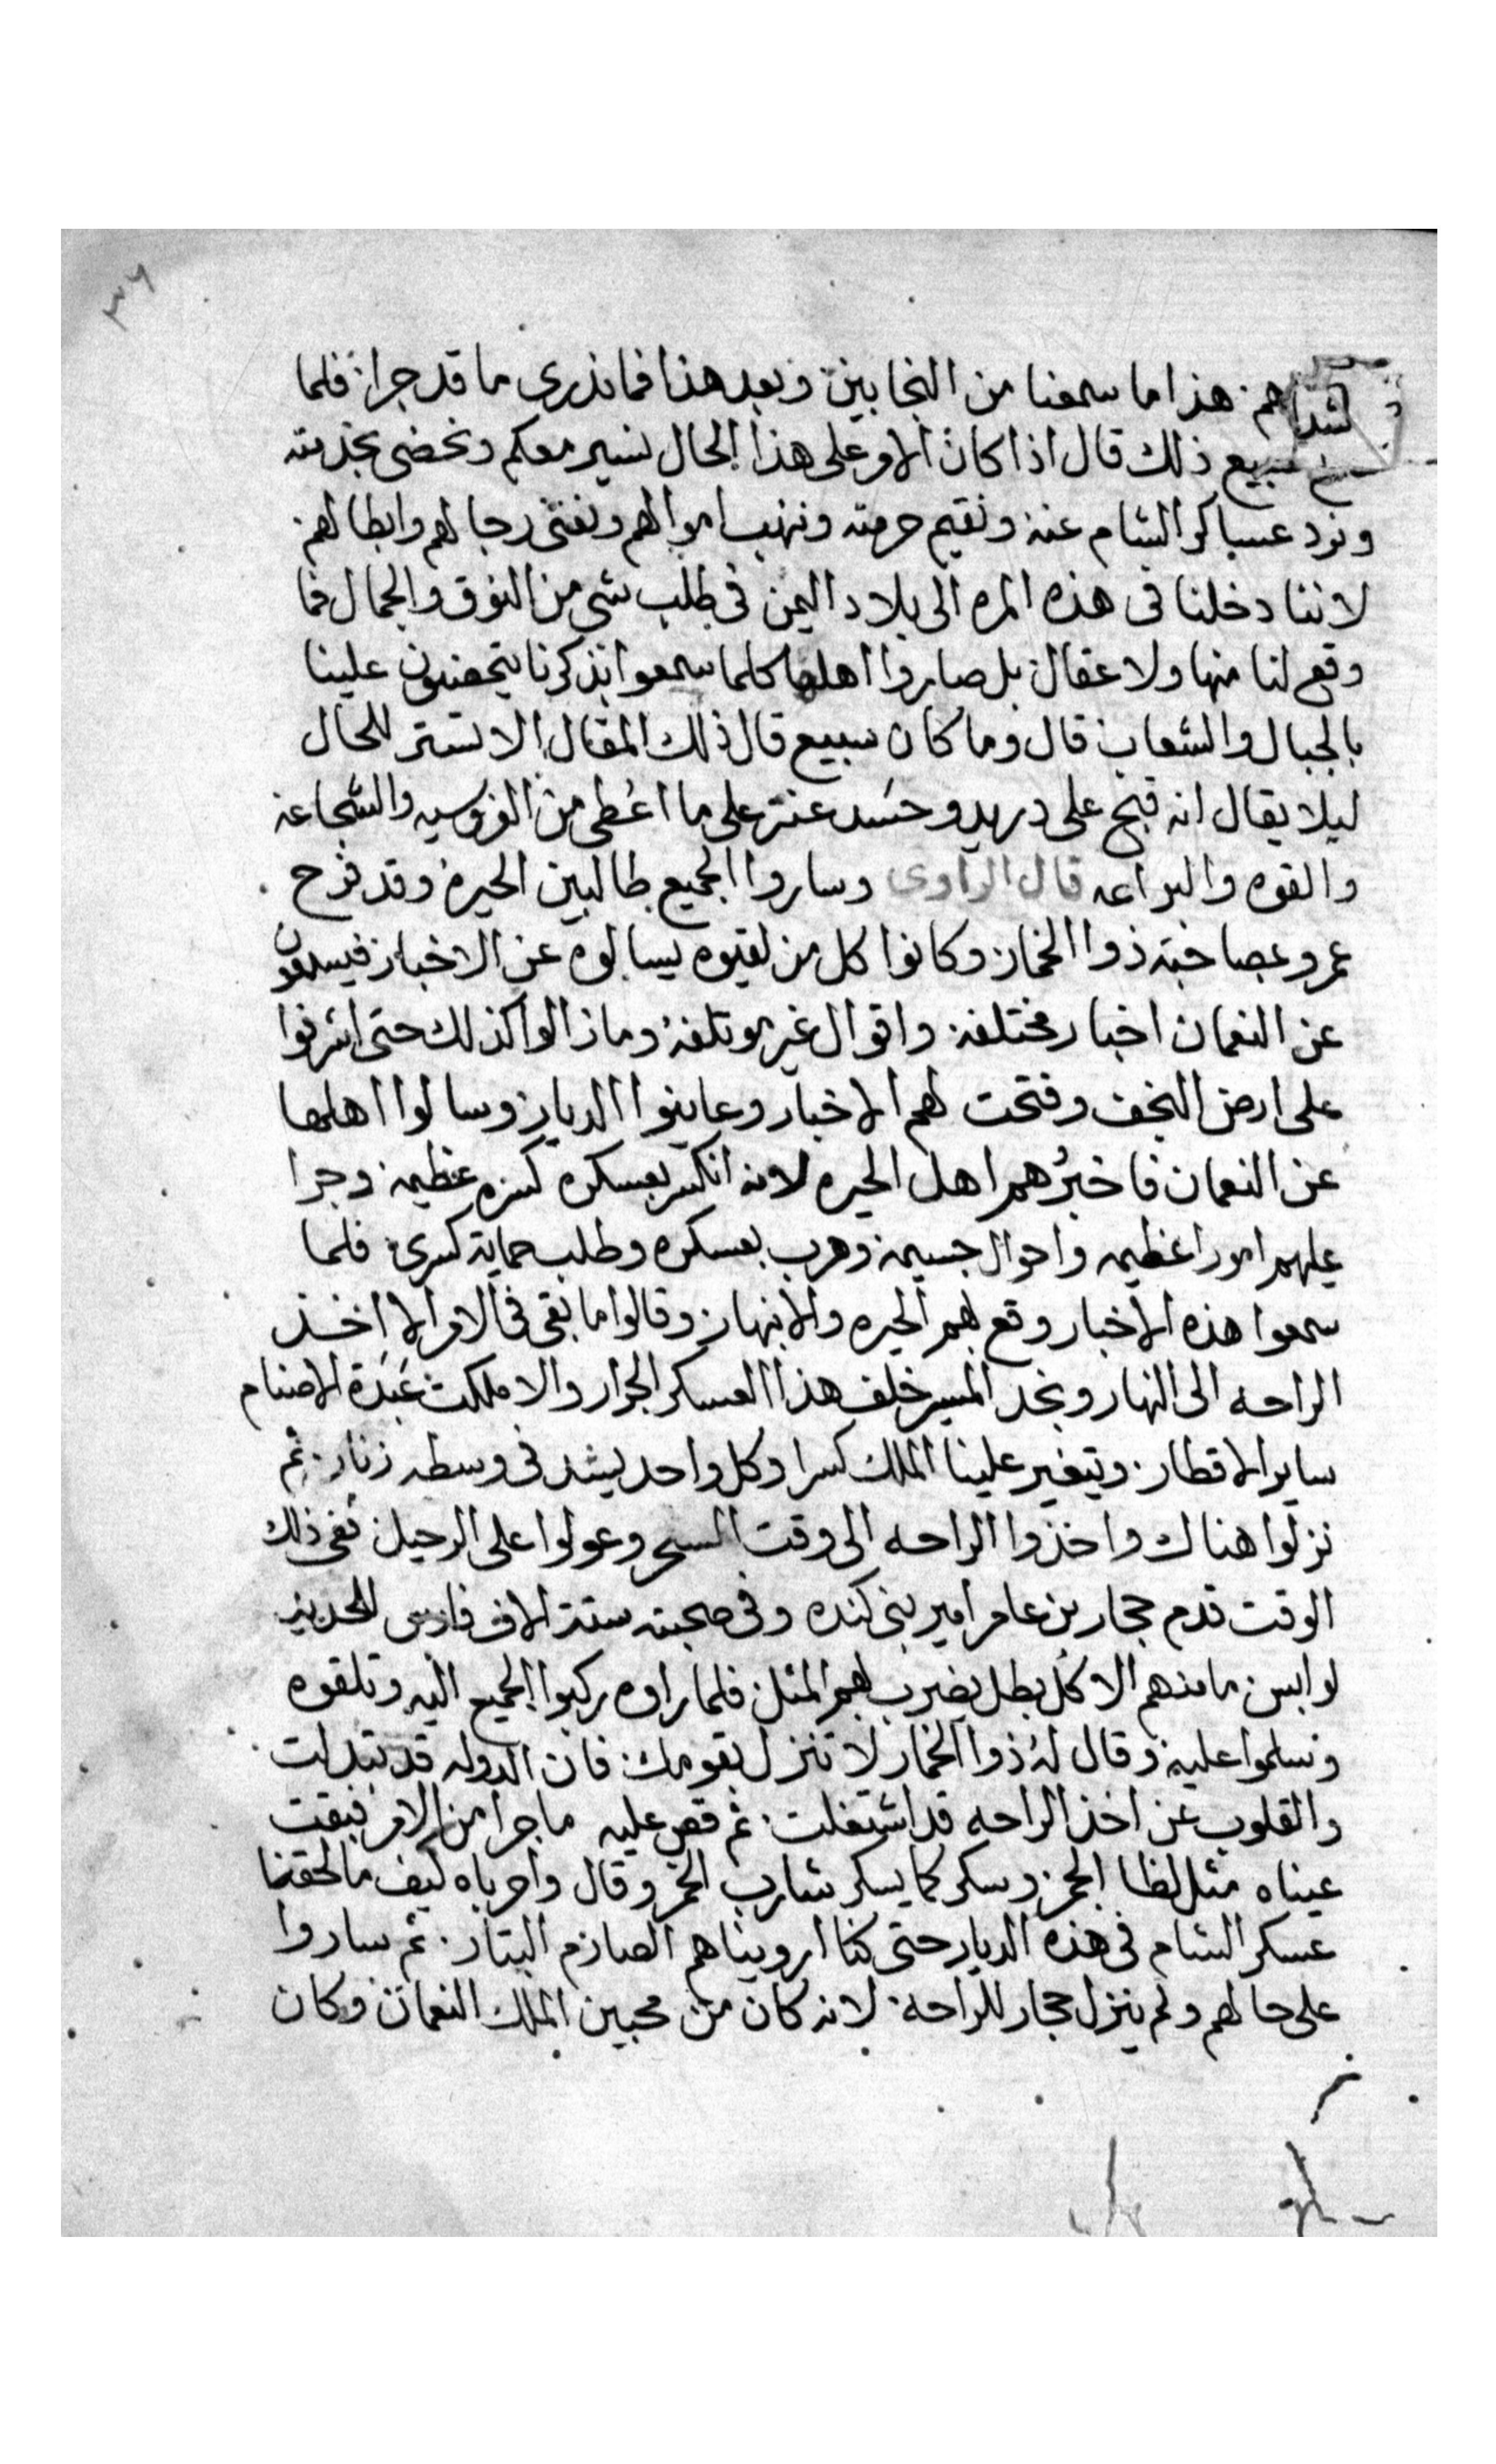 ٣٦
هذا ما سمعنا من النجابين وبعد هذا فما ندرى ما قد جرا فلما
سبيع ذلك قال اذا كان الامر على هذا الحال نسير معكم ونحضى بخدمته
ونرد عساكر الشام عنه ونقيم حرمته وننهب اموالهم ونفنى رجالهم وابطالهم
لاننا دخلنا فى هذه المره الى بلاد اليمن فى طلب شى من النوق والجمال فما
وقع لنا منها ولا عقال بل صاروا اهلها كلما سمعوا بذكرنا يتحصنون علينا
بالجبال والشعاب قال وما كان سبيع قال ذلك المقال الا تستر للحال
ليلا يقال انه قبح على دريد وحسد عنتر على ما اعُطى من الفروسيه والشجاعه
والقوه والبراعه قال الراوى وساروا الجميع طالبين الحيره وقد فرح
عمرو بصاحبه ذوا الخمار وكانوا كل من لقيوه يسالوه عن الاخبار فيسمعون
عن النعمان اخبار مختلفه واقوال غير موتلفه وما زالوا كذلك حتى اشرفوا
على ارض النجف وفتحت لهم الاخبار وعاينوا الديار وسالوا اهلها
عن النعمان فاخبرُهم اهل الحيره لانه انكسر بعسكره كسره عظيمه وجرا
عليهم امور اعظيمه واحوال جسيمه وهرب بعسكره وطلب حماية كسرى فلما
سمعوا هذه الاخبار وقع بهم الحيره والانبهار وقالوا ما بقى فى الامر الا اخذ
الراحه الى النهار ونجد المسير خلف هذا العسكر الجرار والا ملكت عَبَدة الاصنام
ساير الاقطار ويتغير علينا الملك كسرا وكل واحد يشد فى وسطه زنار ثم
نزلوا هناك واخذوا الراحه الى وقت السحر وعولوا على الرحيل ففى ذلك
الوقت قدم حجار بن عامر امير بنى كنده وفى صحبته ستة الاف فارس للحديد
لوابس ما منهم الا كل بطل يضرب بهم المثل فلما راوه ركبوا الجميع اليه وتلقوه
وسلموا عليه وقال لهُ ذوا الخمار لا تنزل بقومك فان الدوله قد تبدلت
والقلوب عن اخذ الراحه قد اشتغلت ثم قص عليه ما جرا من الامر فبقت
عيناه مثل لظا الجمر وسكر كما يسكر شارب الخمر وقال واحرباه كيف ما لحقنا
عسكر الشام فى هذه الديار حتى كنا ارويناهم الصارم البتار ثم ساروا
على حالهم ولم ينزل حجار للراحه لانه كان من محبين الملك النعمان وكان